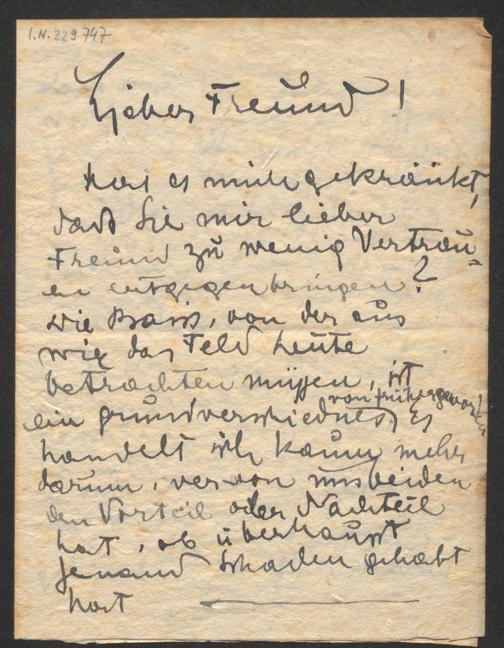 I.N. 229.747
Lieber Freund!
Hat es mich gekränkt,
daß Sie mir lieber
Freund zu wenig Vertrau-
en entgegenbringen?
Die Basis, von der aus
wir das Feld heute
betrachten müssen, ist
ein grundverschiednes von früher geworden, es
handelt sich kaum mehr
darum, wer von uns beiden
den Vorteil oder Nachteil
hat, ob überhaupt
jemand Schaden gehabt
hat